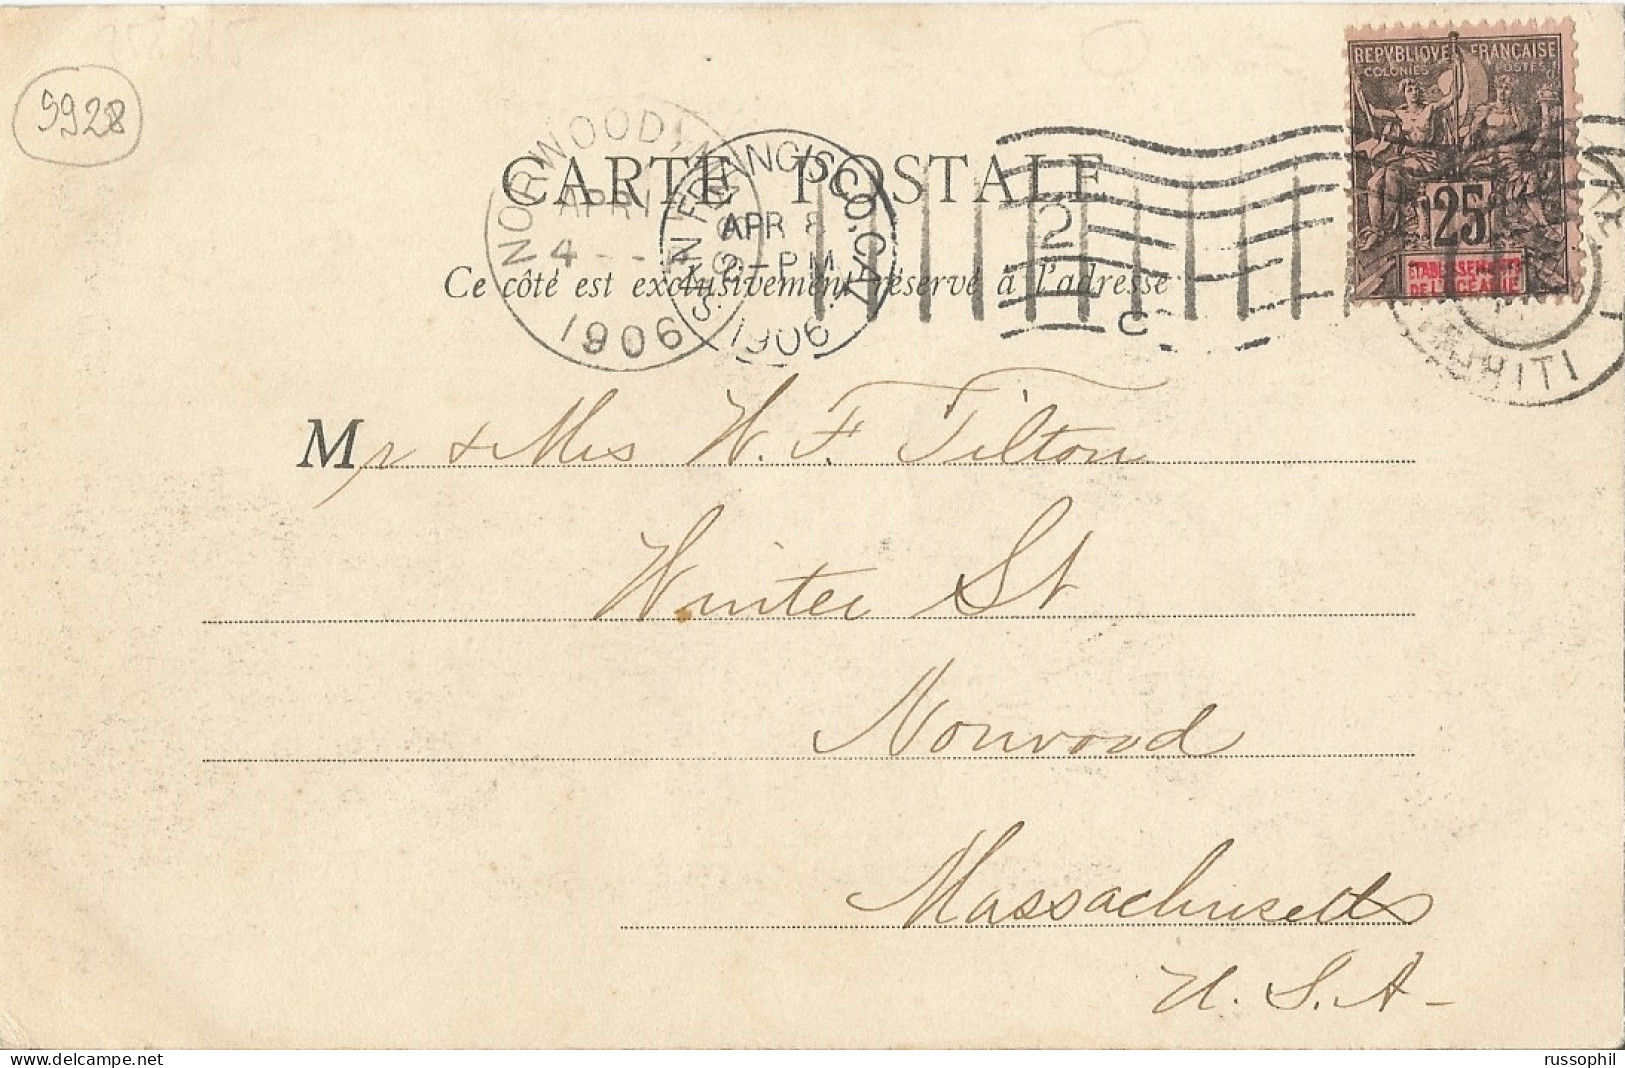 5928
REPVBLIQVE FRANCAISE
COLONIES POSTES
25
ETABLISSEMENTS
DE L'OCÉANIE
NORWOOD, M
APR 1
4
1906
SAN FRANCISCO, CAL.
APR 8
2-PM
1906
2
C
TAHITI
CARTE POSTALE
Ce côté est exclusivement réservé à l'adresse
Mr & Mrs W. F. Tilton
Winter St
Norwood
Massachusetts
U. S. A-
russophil - www.delcampe.net